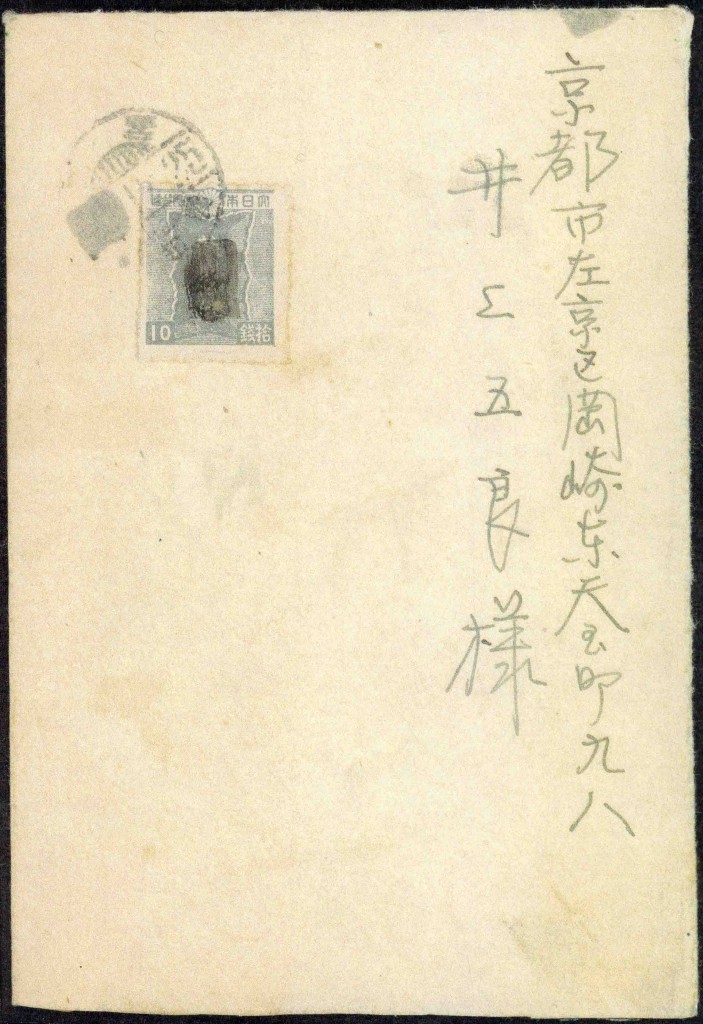 京都市左京区岡崎東天王町九八
井上五良様
大日本
10
拾銭